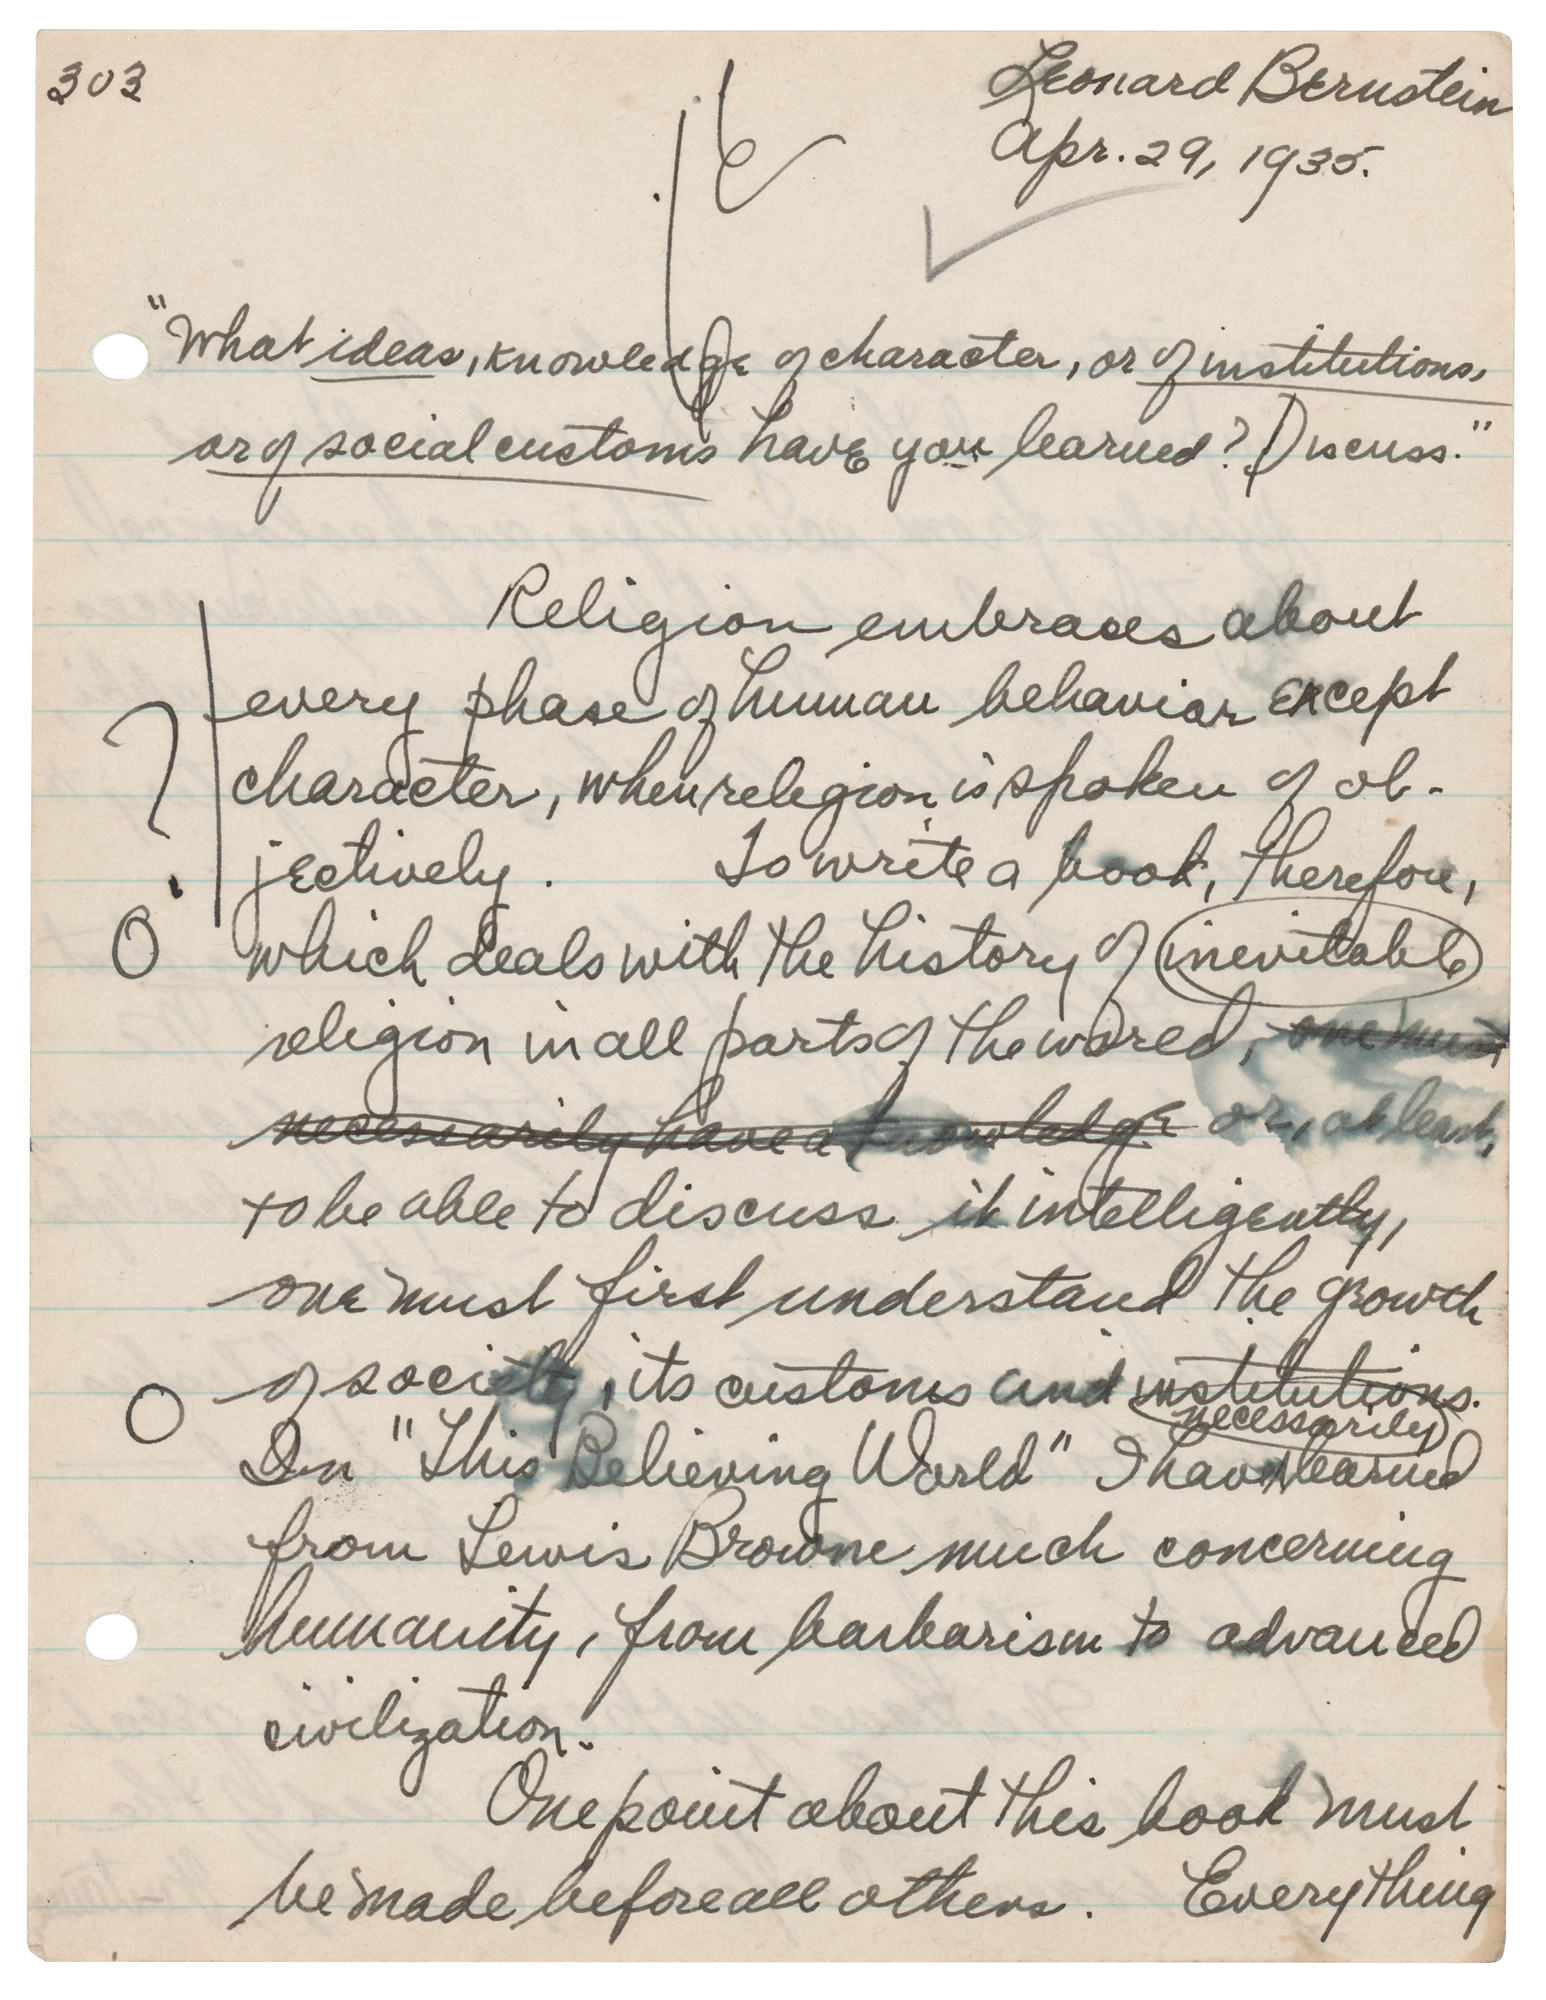 303
Leonard Bernstein
Apr. 29, 1935.
"What ideas, knowledge of character, or of institutions,
or of social customs have you learned? Discuss."
Religion embraces about
every phase of human behavior except
character, when religion is spoken of ob-
jectively. To write a book, therefore,
which deals with the history of inevitable
religion in all parts of the world, one must
necessarily have a knowledge or, at least,
to be able to discuss it intelligently,
one must first understand the growth
of society, its customs and institutions.
necessarily
In "This Believing World" I have learned
from Lewis Browne much concerning
humanity, from barbarism to advanced
civilization.
One point about this book must
be made before all others. Everything